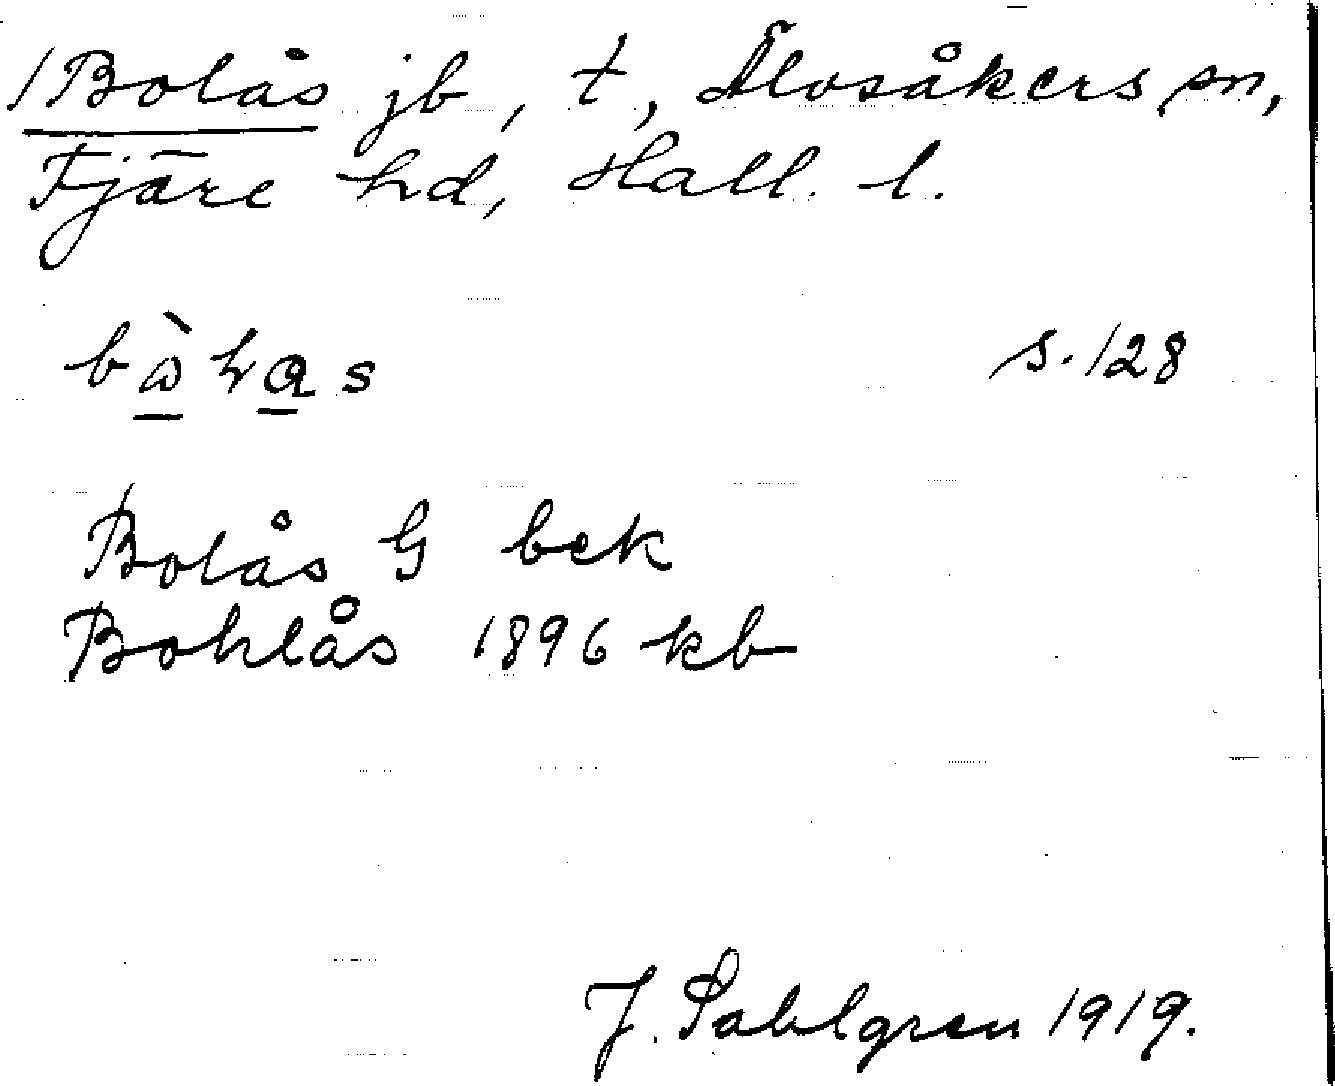 /Bolås jb, t, Älvsåkers sn,
Fjäre hd, Hall. l.
s. 128
Bolås G bek
Bohlås 1896 kb
J. Sahlgren 1919.